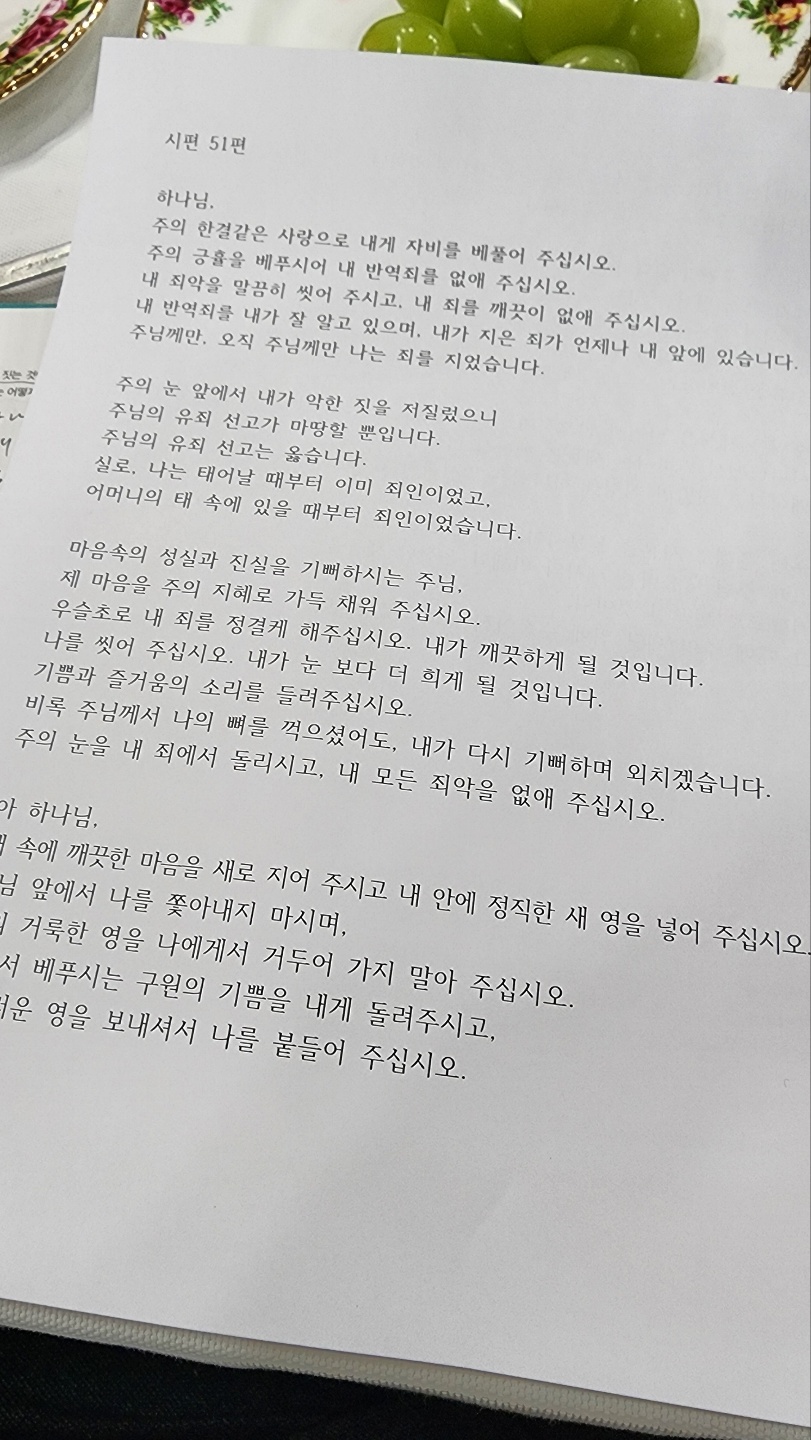 시편 51편
하나님,
주의 한결같은 사랑으로 내게 자비를 베풀어 주십시오.
주의 긍휼을 베푸시어 내 반역죄를 없애 주십시오.
내 죄악을 말끔히 씻어 주시고, 내 죄를 깨끗이 없애 주십시오.
내 반역죄를 내가 잘 알고 있으며, 내가 지은 죄가 언제나 내 앞에 있습니다.
주님께만, 오직 주님께만 나는 죄를 지었습니다.
주의 눈 앞에서 내가 악한 짓을 저질렀으니
주님의 유죄 선고가 마땅할 뿐입니다.
주님의 유죄 선고는 옳습니다.
실로, 나는 태어날 때부터 이미 죄인이었고,
어머니의 태 속에 있을 때부터 죄인이었습니다.
마음속의 성실과 진실을 기뻐하시는 주님,
제 마음을 주의 지혜로 가득 채워 주십시오.
우슬초로 내 죄를 정결케 해주십시오. 내가 깨끗하게 될 것입니다.
나를 씻어 주십시오. 내가 눈 보다 더 희게 될 것입니다.
기쁨과 즐거움의 소리를 들려주십시오.
비록 주님께서 나의 뼈를 꺽으셨어도, 내가 다시 기뻐하며 외치겠습니다.
주의 눈을 내 죄에서 돌리시고, 내 모든 죄악을 없애 주십시오.
아 하나님,
속에 깨끗한 마음을 새로 지어 주시고 내 안에 정직한 새 영을 넣어 주십시오.
님 앞에서 나를 쫓아내지 마시며,
거룩한 영을 나에게서 거두어 가지 말아 주십시오.
서 베푸시는 구원의 기쁨을 내게 돌려주시고,
운 영을 보내셔서 나를 붙들어 주십시오.
짓는 것